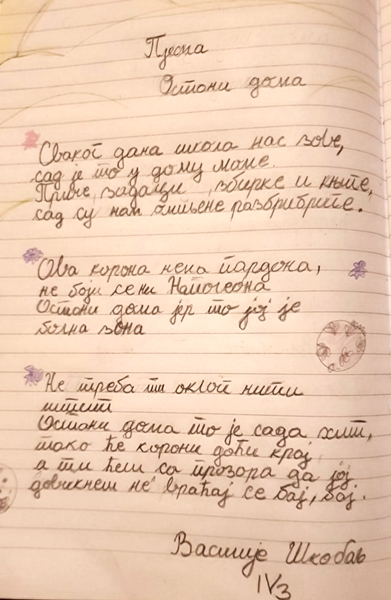 Пјесма
Остани дома
Сваког дана школа нас зове,
сад је то у дому моме.
Приче, задаци, збирке и књиге,
сад су нам омиљене разбибриге.
Ова корона нема пардона,
не боји се ни Наполеона
Остани дома јер то јој је
болна зона
Не треба ти оклоп нити
штит
Остани дома то је сада хит,
тако ће корони доћи крај
а ти ћеш са прозора да јој
довикнеш не враћај се бај, бај.
Василије Шкобаљ
IV3